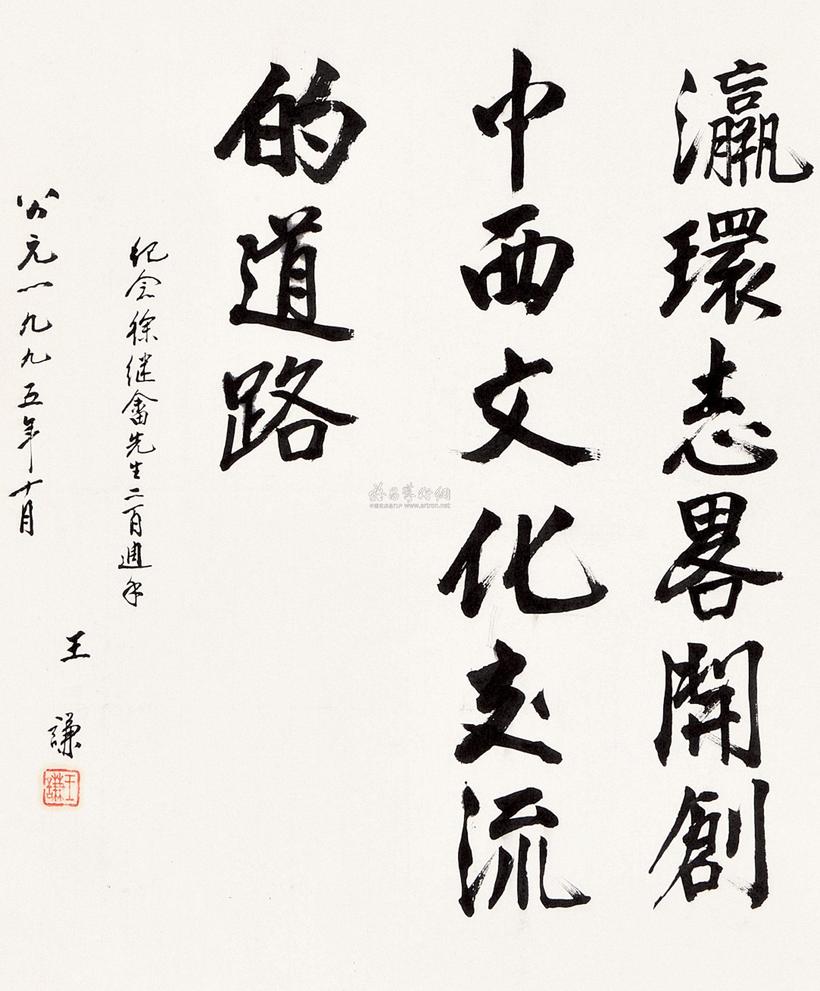 瀛環志畧開創
中西文化交流
的道路
纪念徐继畬先生二百週年
公元一九九五年十月
王謙
王謙
www.artron.net